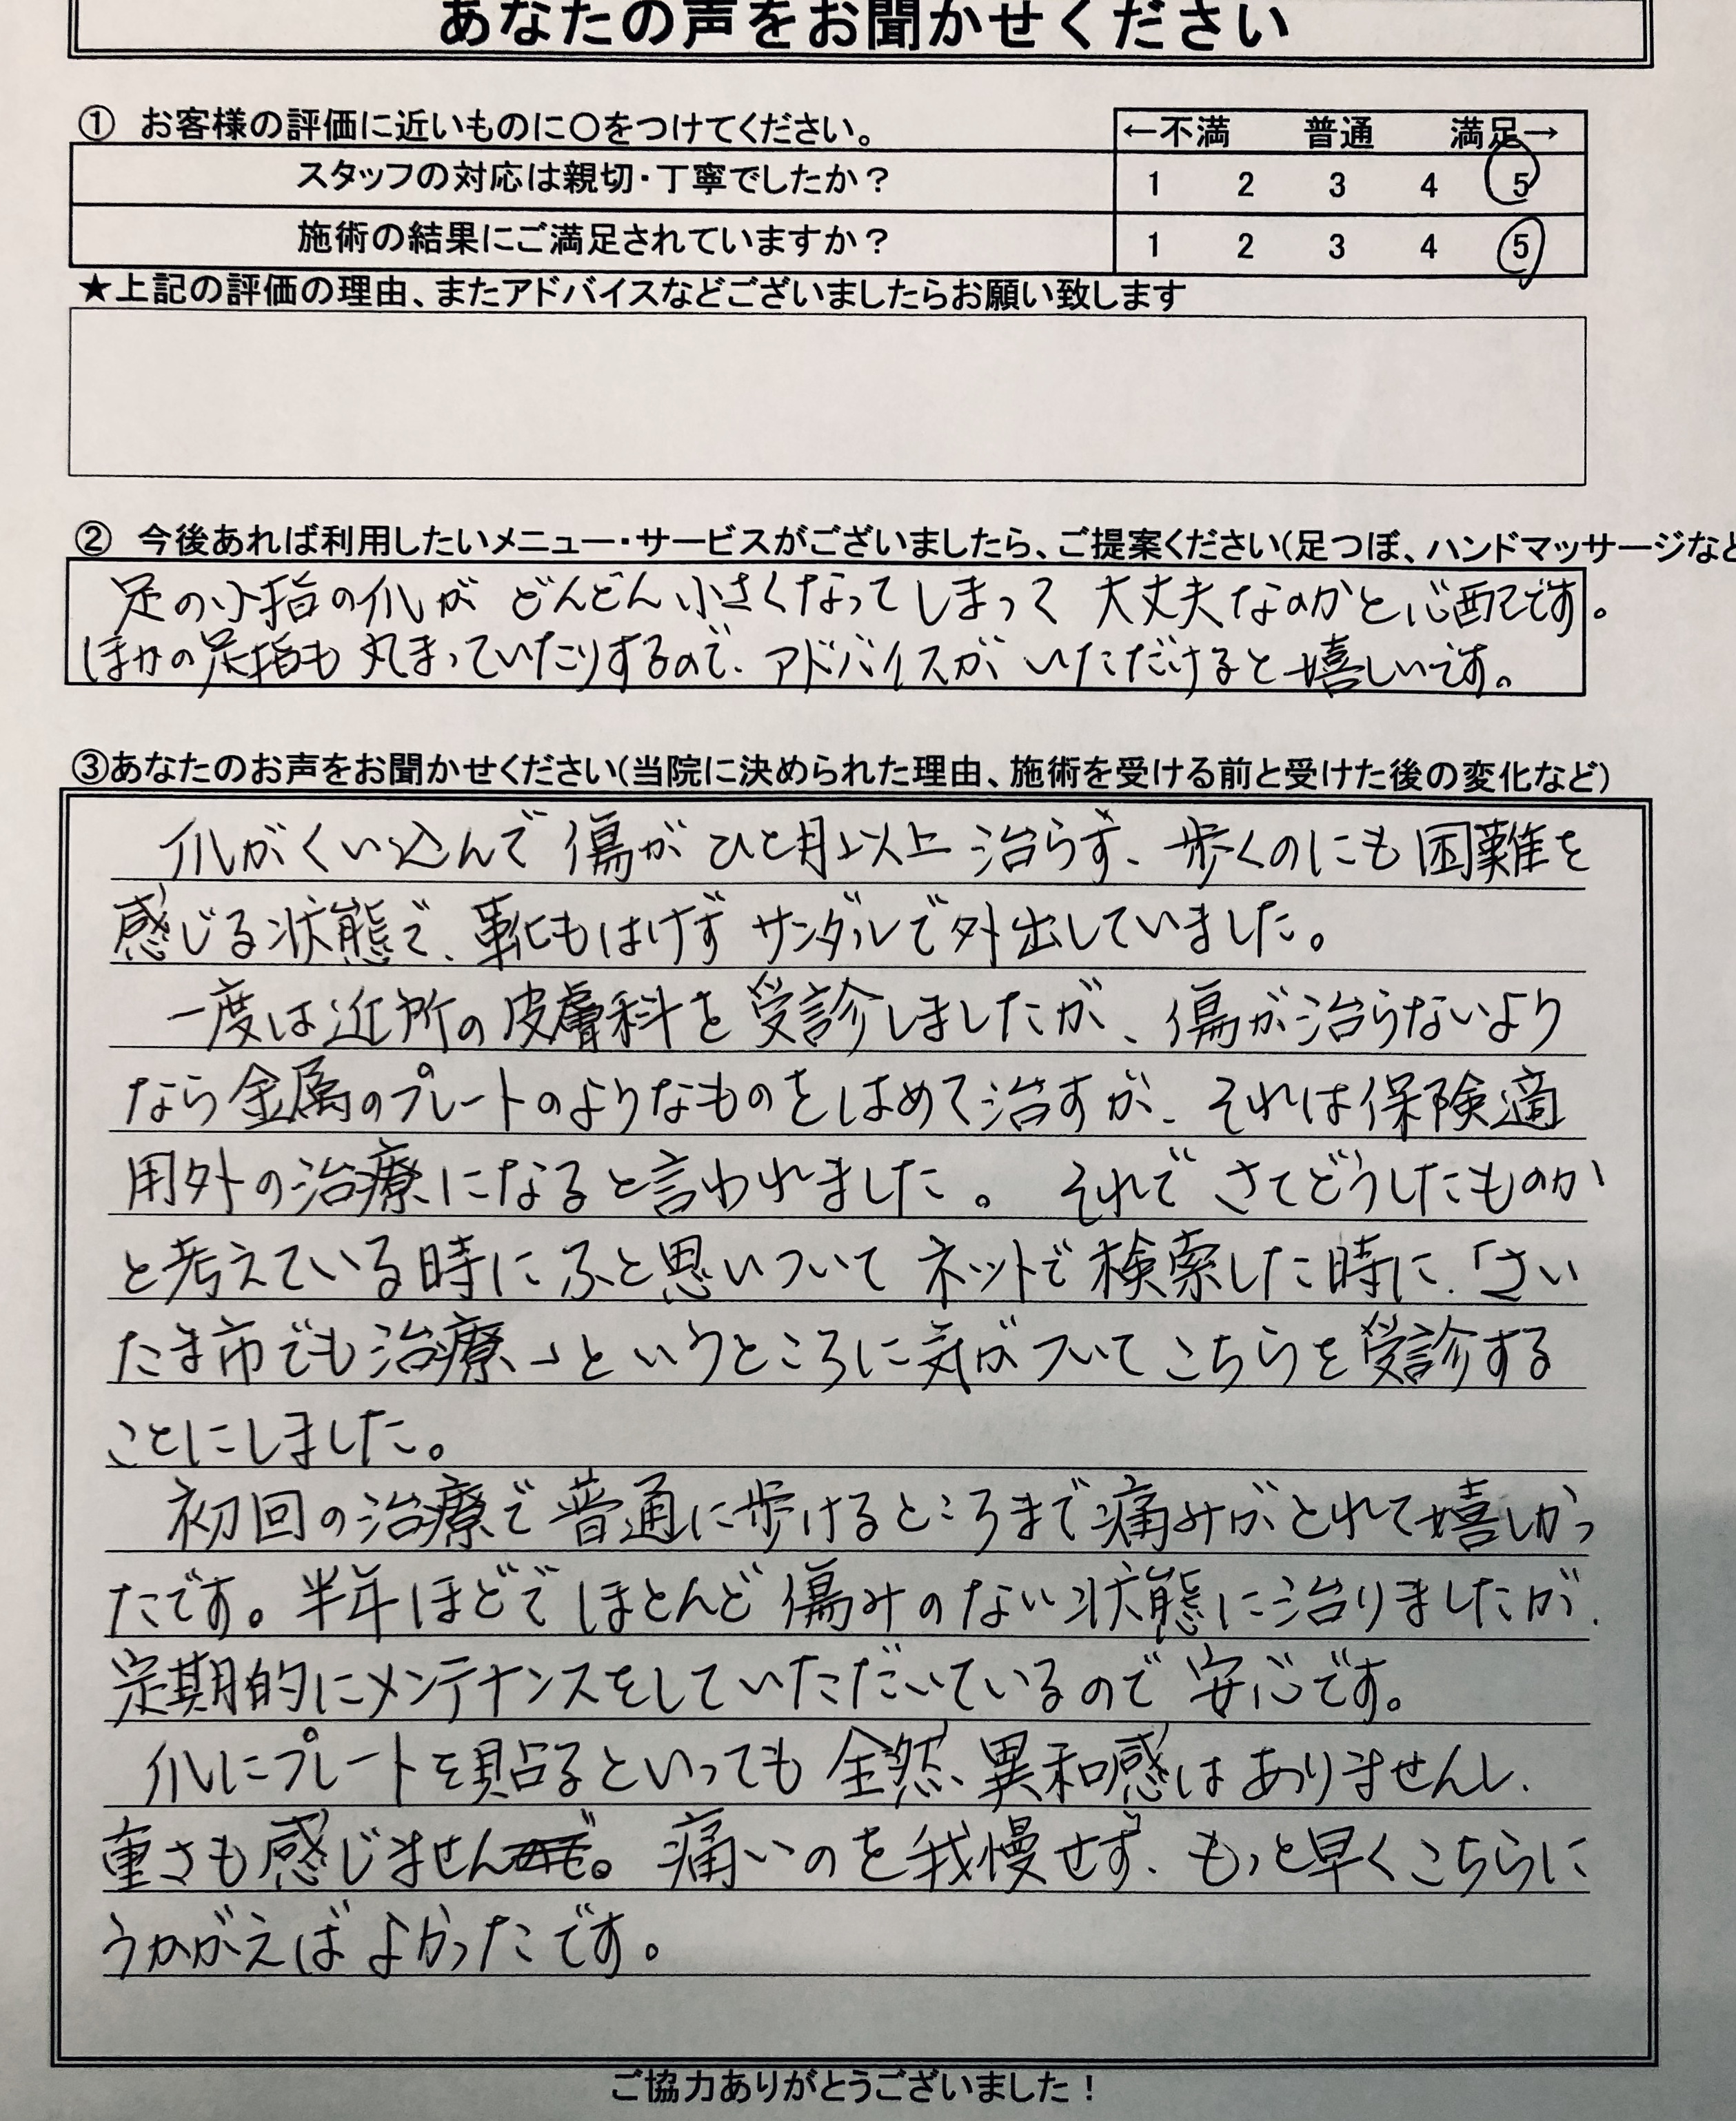 あなたの声をお聞かせください
① お客様の評価に近いものに○をつけてください。
←不満 普通 満足→
スタッフの対応は親切・丁寧でしたか？ 1 2 3 4 5
施術の結果にご満足されていますか？ 1 2 3 4 5
★上記の評価の理由、またアドバイスなどございましたらお願い致します
② 今後あれば利用したいメニュー・サービスがございましたら、ご提案ください(足つぼ、ハンドマッサージなど
足の小指の爪が どんどん小さくなってしまって 大丈夫なのかと心配です。
ほかの足指も 丸まっていたりするので、アドバイスが いただけると嬉しいです。
③あなたのお声をお聞かせください(当院に決められた理由、施術を受ける前と受けた後の変化など)
爪がくい込んで 傷が ひと月以上 治らず、歩くのにも困難を
感じる状態で、靴もはけず サンダルで外出していました。
一度は近所の皮膚科を受診しましたが、傷が治らないより
なら金属のプレートのようなものをはめて治すが、それは保険適
用外の治療になると言われました。 それで さてどうしたものか
と考えている時に ふと思いついて ネットで検索した時に、「さい
たま市でも治療」というところに気がついて こちらを受診する
ことにしました。
初回の治療で普通に歩けるところまで痛みがとれて嬉しかっ
たです。半年ほどでほとんど傷みのない状態に治りましたが、
定期的にメンテナンスをしていただいているので安心です。
爪にプレートを貼るといっても全然、異和感はありませんし、
重さも感じません。 痛いのを我慢せず、もっと早くこちらに
うかがえばよかったです。
ご協力ありがとうございました！